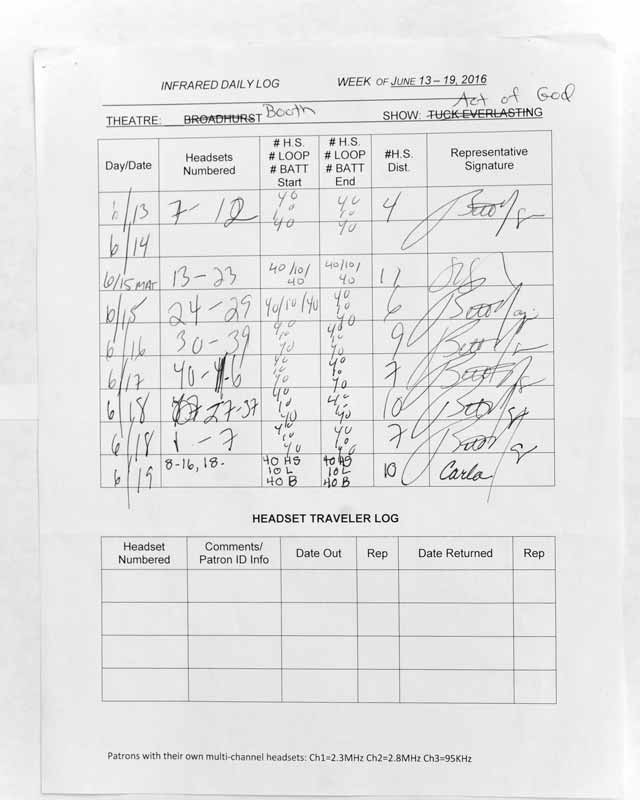 INFRARED DAILY LOG WEEK OF JUNE 13 – 19, 2016
Act of God
THEATRE: BROADHURST Booth SHOW: TUCK EVERLASTING
Day/Date
Headsets Numbered
# H.S. # LOOP # BATT Start
# H.S. # LOOP # BATT End
#H.S. Dist.
Representative Signature
6/13 7 - 12 40 10 40 40 10 40 4
6/14
6/15 MAT 13 - 23 40/10/40 40/10/40 11
6/15 24 - 29 40/10/40 40 10 40 6
6/16 30 - 39 40 10 40 40 10 40 9
6/17 40 - 46 40 10 40 40 10 40 7
6/18 27-37 40 10 40 40 10 40 10
6/18 1 - 7 40 10 40 40 10 40 7
6/19 8-16, 18. 40 HS 10 L 40 B 40 HS 10 L 40 B 10 Carla
HEADSET TRAVELER LOG
Headset Numbered
Comments/ Patron ID Info
Date Out
Rep
Date Returned
Rep
Patrons with their own multi-channel headsets: Ch1=2.3MHz Ch2=2.8MHz Ch3=95KHz